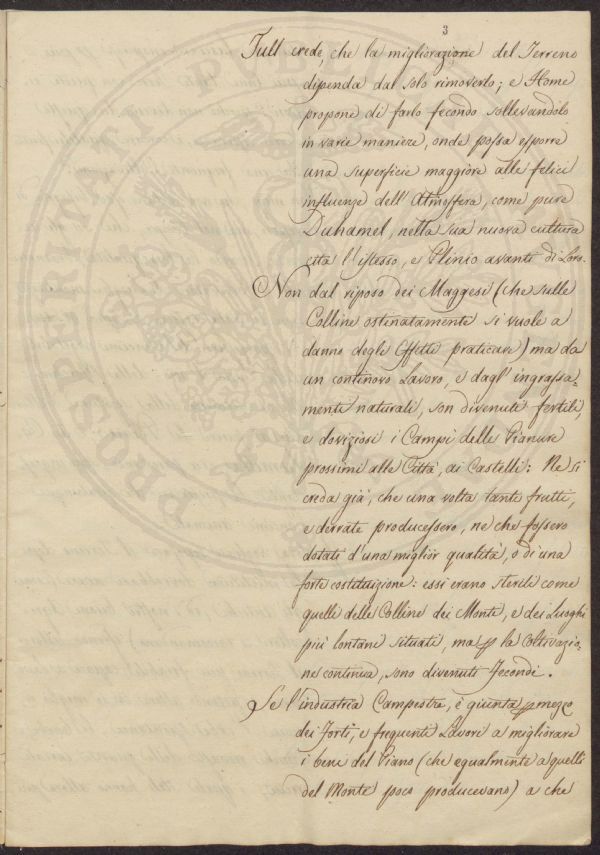 3
Tull crede, che la migliorazione del Terreno
dipenda dal solo rimoverlo; e Home
propone di farlo fecondo sollevandolo
in varie maniere, onde possa esporre
una superficie maggiore alle felici
influenze dell'Atmosfera, come pure
Duhamel, nella sua nuova cultura
cita l'istesso, e Plinio avanti di Loro.
Non dal riposo dei Maggesi (che sulle
Colline ostinatamente si vuole a
danno degli Effetti praticare) ma da
un continovo Lavoro, e dagl'ingrassa-
menti naturali, son divenuti fertili,
e doviziosi i Campi delle Pianure
prossimi alle Città, ai Castelli: Ne si
creda già, che una volta tanti frutti,
e derrate producessero, ne che fossero
dotati d'una miglior qualità, o di una
forte costituzione: essi erano sterili come
quelli delle Colline dei Monti, e dei Luoghi
più lontani situati, ma p la coltivazio-
ne continua, sono divenuti fecondi.
Se l'industria Campestre, è giunta p mezzo
dei forti, e frequenti Lavori a migliorare
i beni del Piano (che egualmente a quelli
del Monte poco producevano) a che
PROSPERITATI PUBL